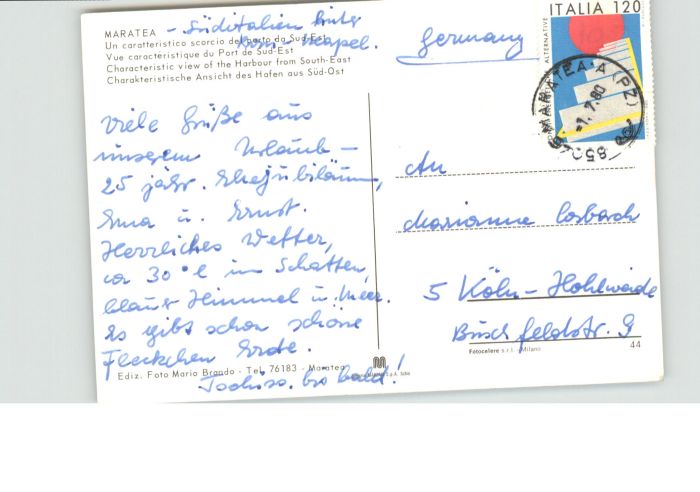 MARATEA - Süditalien hinter
Un caratteristico scorcio del porto da Sud-Est
Rom - Neapel.
Vue caractéristique du Port de Sud-Est
Characteristic view of the Harbour from South-East
Charakteristische Ansicht des Hafen aus Süd-Ost
Germany
ITALIA 120
MARATEA·A (PZ)
-7.7.80
Viele Grüße aus
unserem Urlaub -
25 jähr. Ehejubiläum,
Erna u. Ernst.
Herrliches Wetter,
ca 30° C im Schatten,
blauer Himmel u. Meer.
Es gibt schon schöne
Fleckchen Erde.
Tschüss. bis bald!
An
Marianne Losbach
5 Köln - Hohlweide
Buschfeldstr. 9
Ediz. Foto Mario Brando - Tel. 76183 - Maratea
Fotocelere s.r.l. - Milano
44